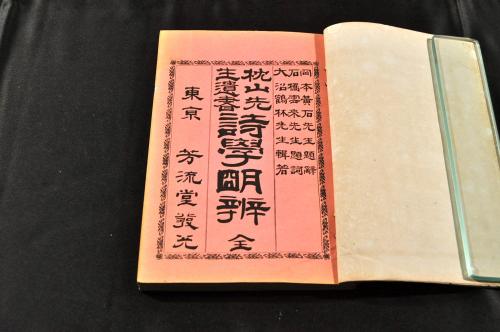 岡本黃石先生題辭
石橋雲來先生題詞
大沼鶴林先生輯著
枕山先生遺書詩學明辨 全
東京 芳流堂發兌